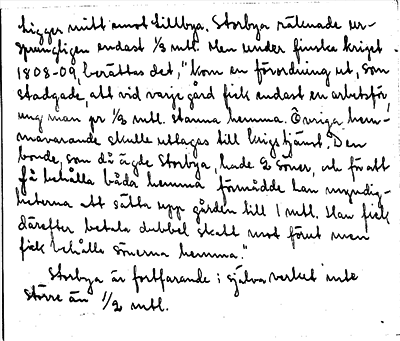 ligger mitt emot Lillbya. Storbya räknade ur-
sprungligen endast 1/2 mtl. Men under finska kriget
1808-09, berättas det, "kom en förordning ut, som
stadgade, att vid varje gård fick endast en arbetsför
ung man pr 1/2 mtl. stanna hemma. Övriga hem-
mavarande skulle uttagas till krigstjänst. Den
bonde, som då ägde Storbya, hade 2 söner, och för att
få behålla båda hemma förmådde han myndig-
heterna att sätta upp gården till 1 mtl. Han fick
därefter betala dubbel skatt mot förut men
fick behålla sönerna hemma."
Storbya är fortfarande i själva verket inte
större än 1/2 mtl.